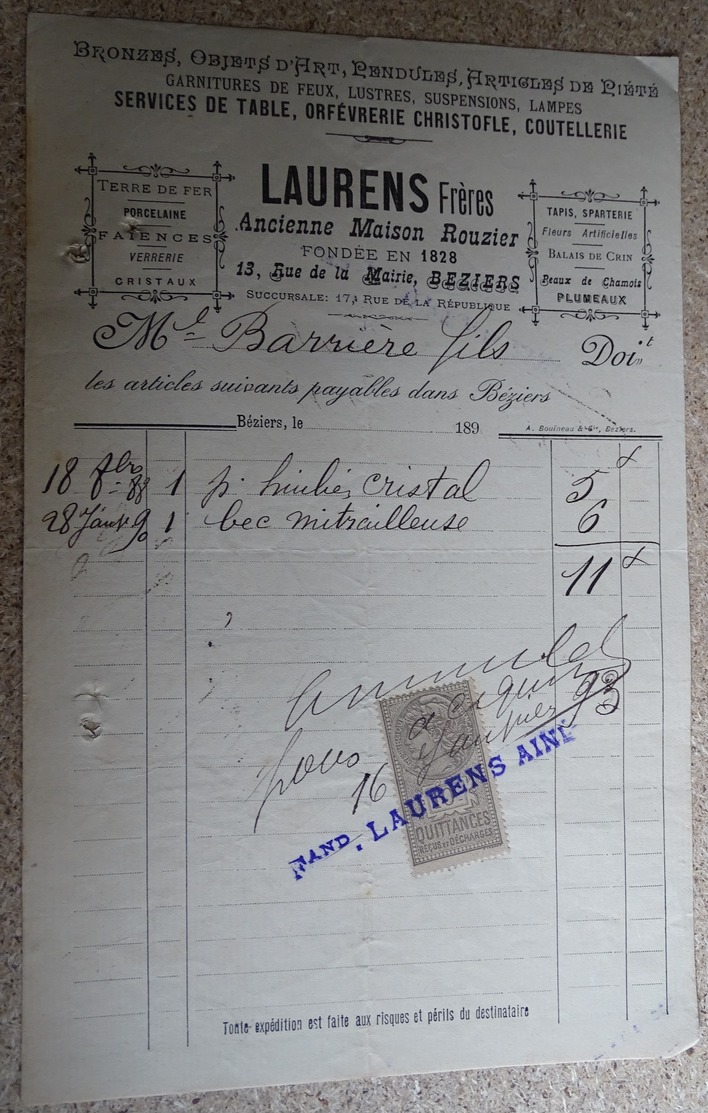 BRONZES, OBJETS D'ART, PENDULES, ARTICLES DE PIÉTÉ
GARNITURES DE FEUX, LUSTRES, SUSPENSIONS, LAMPES
SERVICES DE TABLE, ORFÉVRERIE CHRISTOFLE, COUTELLERIE
TERRE DE FER
PORCELAINE
FAIENCES
VERRERIE
CRISTAUX
LAURENS Frères
Ancienne Maison Rouzier
FONDÉE EN 1828
13, Rue de la Mairie, BEZIERS
SUCCURSALE: 17, RUE DE LA RÉPUBLIQUE
TAPIS, SPARTERIE
Fleurs Artificielles
BALAIS DE CRIN
Peaux de Chamois
PLUMEAUX
Barrière fils Doit
les articles suivants payables dans Béziers
Béziers, le 189
A. Bouineau & Cie, Béziers.
18 88 1 cristal 5
28 Janv 90 1 bec mitrailleuse 6
11
pour acquit
16 Janvier 93
FNAND. LAURENS AINÉ
QUITTANCES
REÇUS ET DÉCHARGES
Toute expédition est faite aux risques et périls du destinataire